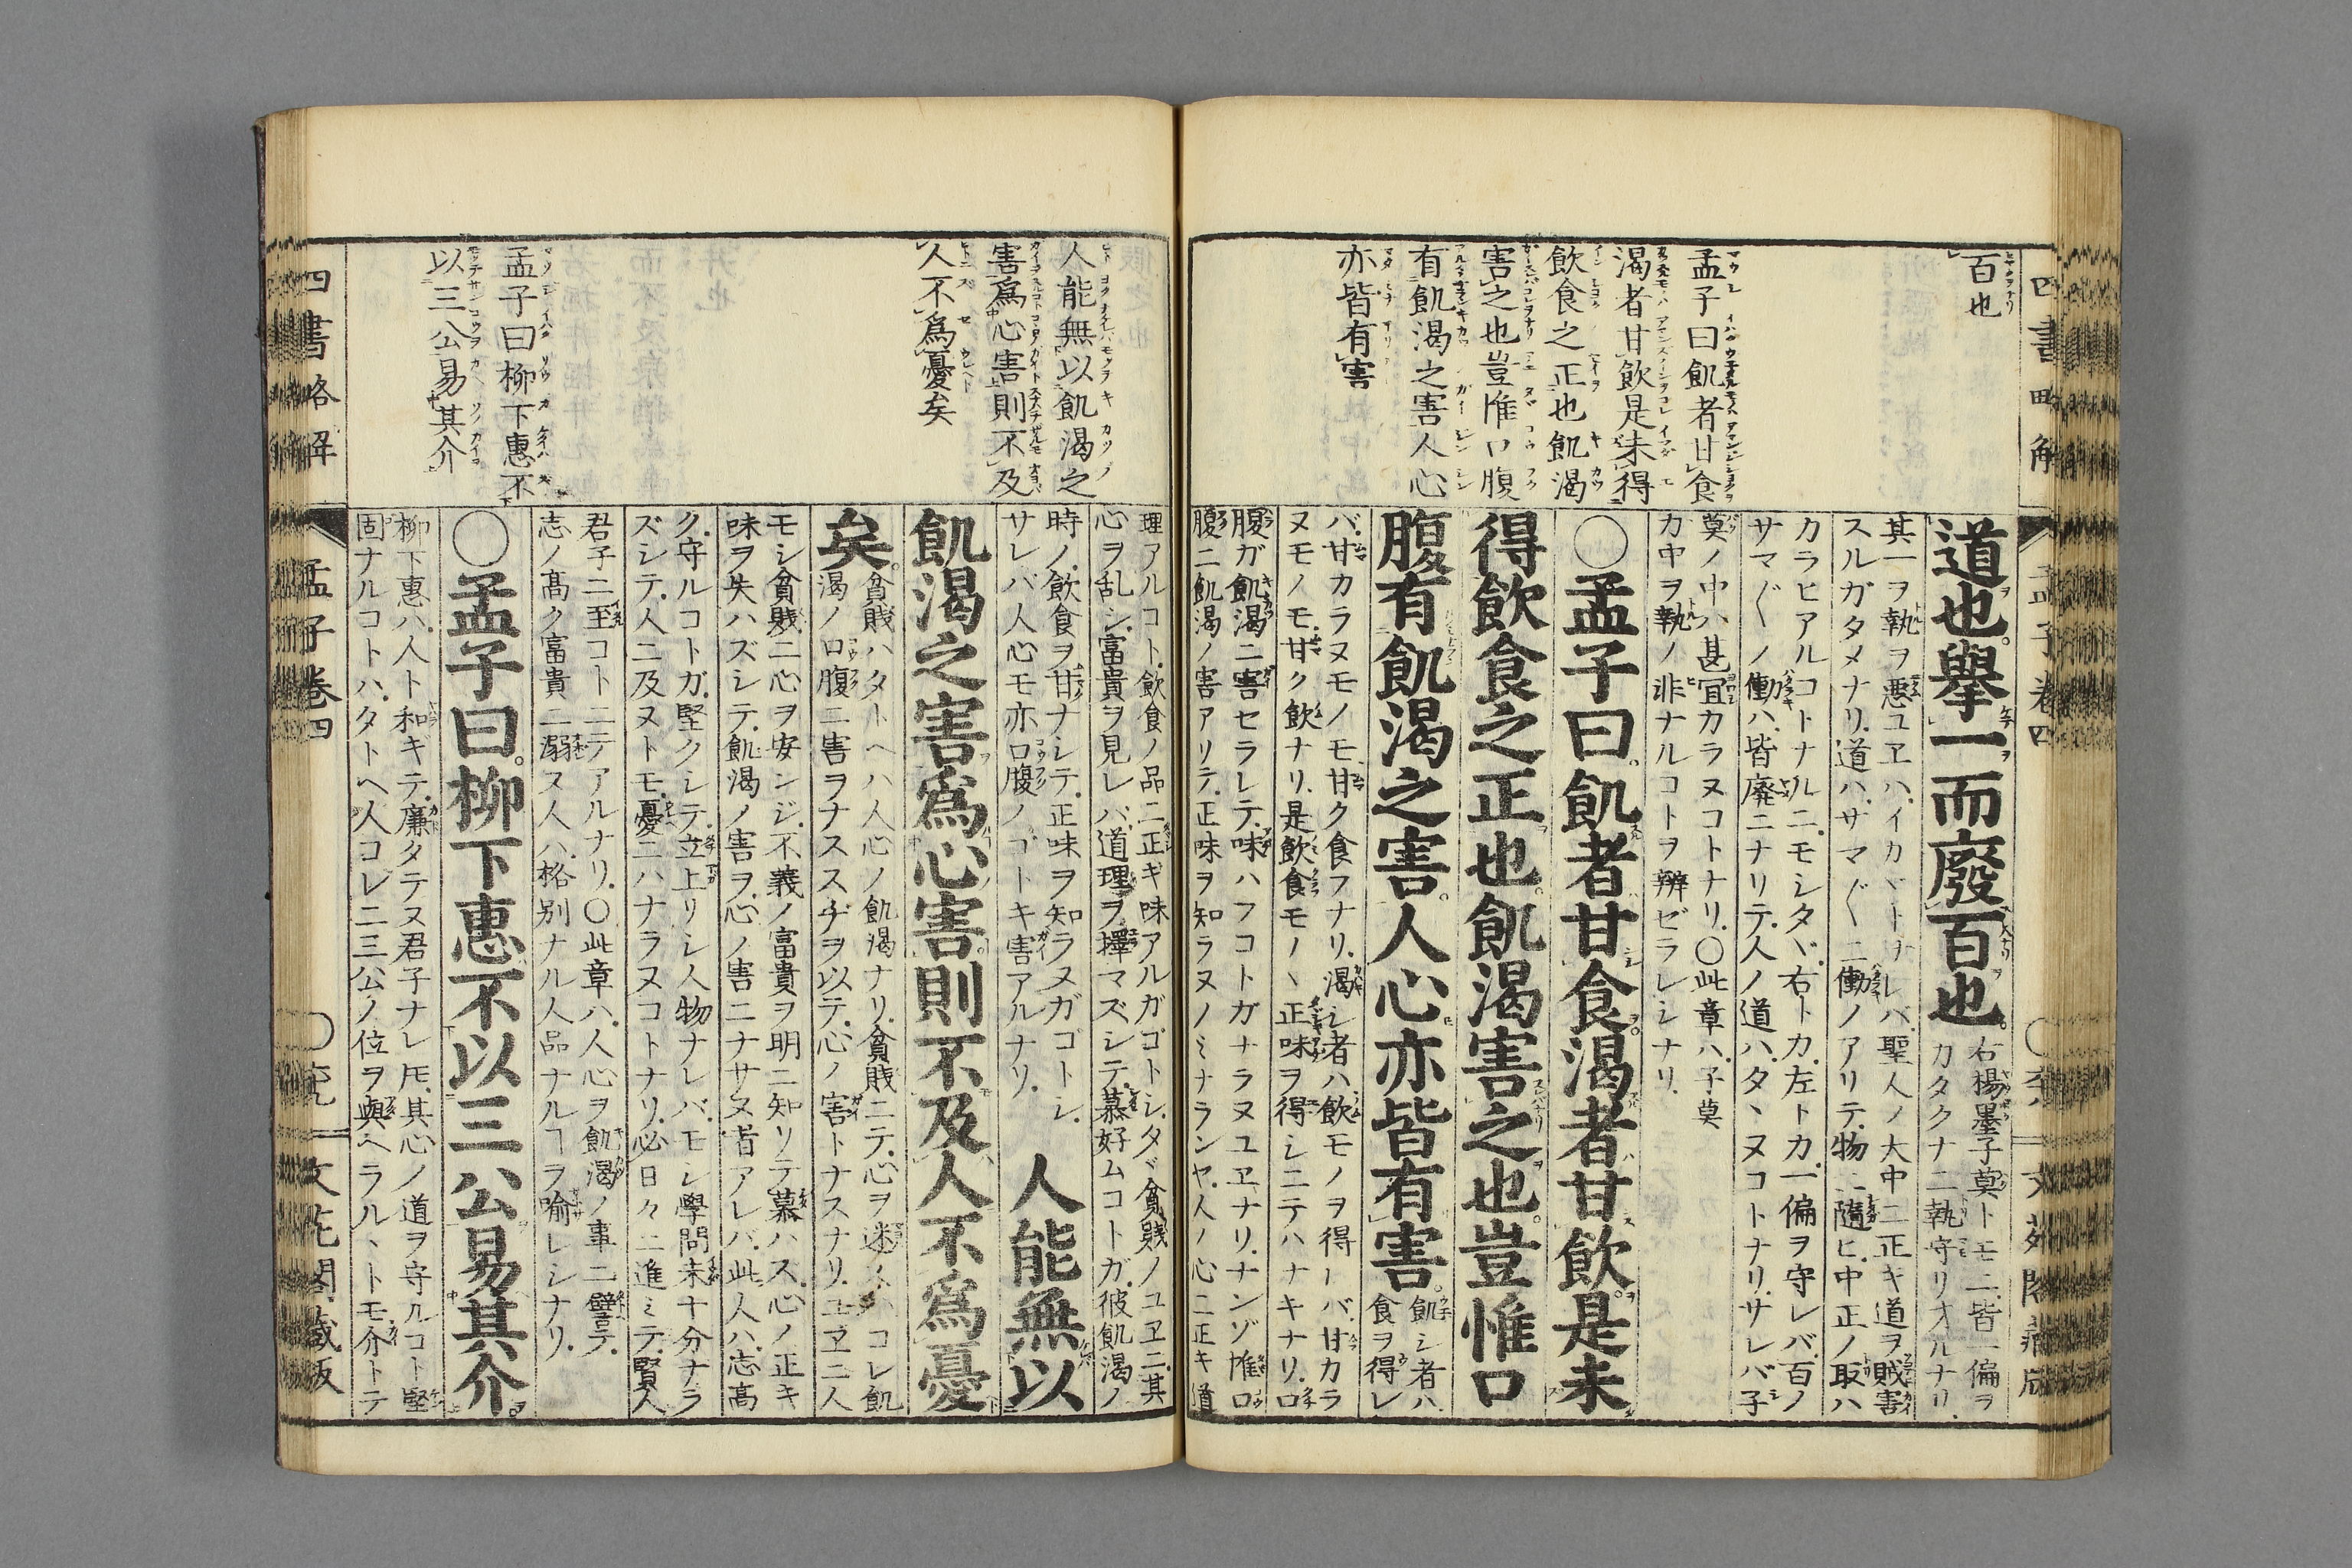 四書略解
孟子巻四
百也
孟子曰飢者甘食
渇者甘飲是未得
飲食之正也飢渇
害之也豈惟口腹
有飢渇之害人心
亦皆有害
道也。擧一而廢百也。
右楊墨子莫トモニ、皆一偏ヲ
カタクナニ執守リオルナリ、
其一ヲ執ヲ悪ユヱハ、イカヾトナレバ、聖人ノ大中ニ正キ道ヲ賊害
スルガタメナリ、道ハ、サマ〴〵ニ働ノアリテ、物ニ隨ヒ、中正ノ取ハ
カラヒアルコトナルニ、モシタヾ右トカ、左トカ、一偏ヲ守レバ、百ノ
サマ〴〵ノ働ハ、皆廢ニナリテ、人ノ道ハ、タヽヌコトナリ、サレバ子
莫ノ中ハ、甚宜カラヌコトナリ、〇此章ハ、子莫
カ中ヲ執ノ非ナルコトヲ辨ゼラレシナリ、
〇孟子曰。飢者甘食。渇者甘飲。是未
得飲食之正也。飢渇害之也。豈惟口
腹有飢渇之害。人心亦皆有害。
飢シ者ハ、
食ヲ得レ
バ、甘カラヌモノモ、甘ク食フナリ、渇シ者ハ、飲モノヲ得レバ、甘カラ
ヌモノモ、甘ク飲ナリ、是飲食モノヽ正味ヲ得シニテハナキナリ、口
腹ガ飢渇ニ害セラレテ、味ハフコトガナラヌユヱナリ、ナンゾ惟口
腹ニ飢渇ノ害アリテ、正味ヲ知ラヌノミナランヤ、人ノ心ニ正キ道
人能無以飢渇之
害爲心害則不及
人不爲憂矣
孟子曰柳下惠不
以三公易其介
理アルコト、飲食ノ品ニ正キ味アルガゴトシ、タヾ貧賎ノユヱニ、其
心ヲ乱シ、富貴ヲ見レバ、道理ヲ擇マズシテ、慕好ムコトガ、彼飢渇ノ
時ノ飲食ヲ甘ナシテ、正味ヲ知ラヌガゴトシ、
サレバ人心モ亦口腹ノゴトキ害アルナリ、
人能無以
飢渇之害爲心害。則不及人不爲憂
矣。
貧賎ハタトヘハ人心ノ飢渇ナリ、貧賎ニテ、心ヲ迷ハコレ飢
渇ノ口腹ニ害ヲナススヂヲ以テ、心ノ害トナスナリ、ユヱニ人
モシ貧賎ニ心ヲ安ンジ、不義ノ富貴ヲ明ニ知リテ慕ハス、心ノ正キ
味ヲ失ハズシテ、飢渇ノ害ヲ、心ノ害ニナサヌ者アレバ、此人ハ、志高
ク、守ルコトガ、堅クシテ、立上リシ人物ナレバ、モシ學問未十分ナラ
ズシテ、人ニ及ヌトモ、憂ニハナラヌコトナリ、必日々ニ進ミテ、賢人
君子ニ至コトニテアルナリ、〇此章ハ、人心ヲ飢渇ノ事ニ譬テ、
志ノ高ク富貴ニ溺ヌ人ハ、格別ナル人品ナルヿヲ喩レシナリ、
〇孟子曰。柳下惠不以三公易其介。
柳下惠ハ、人ト和キテ、廉タテヌ君子ナレ𪜈、其心ノ道ヲ守ルコト堅
固ナルコトハ、タトヘ人コレニ三公ノ位ヲ與ヘラルヽトモ、介トテ
四書略解
孟子巻四
文花閣蔵版